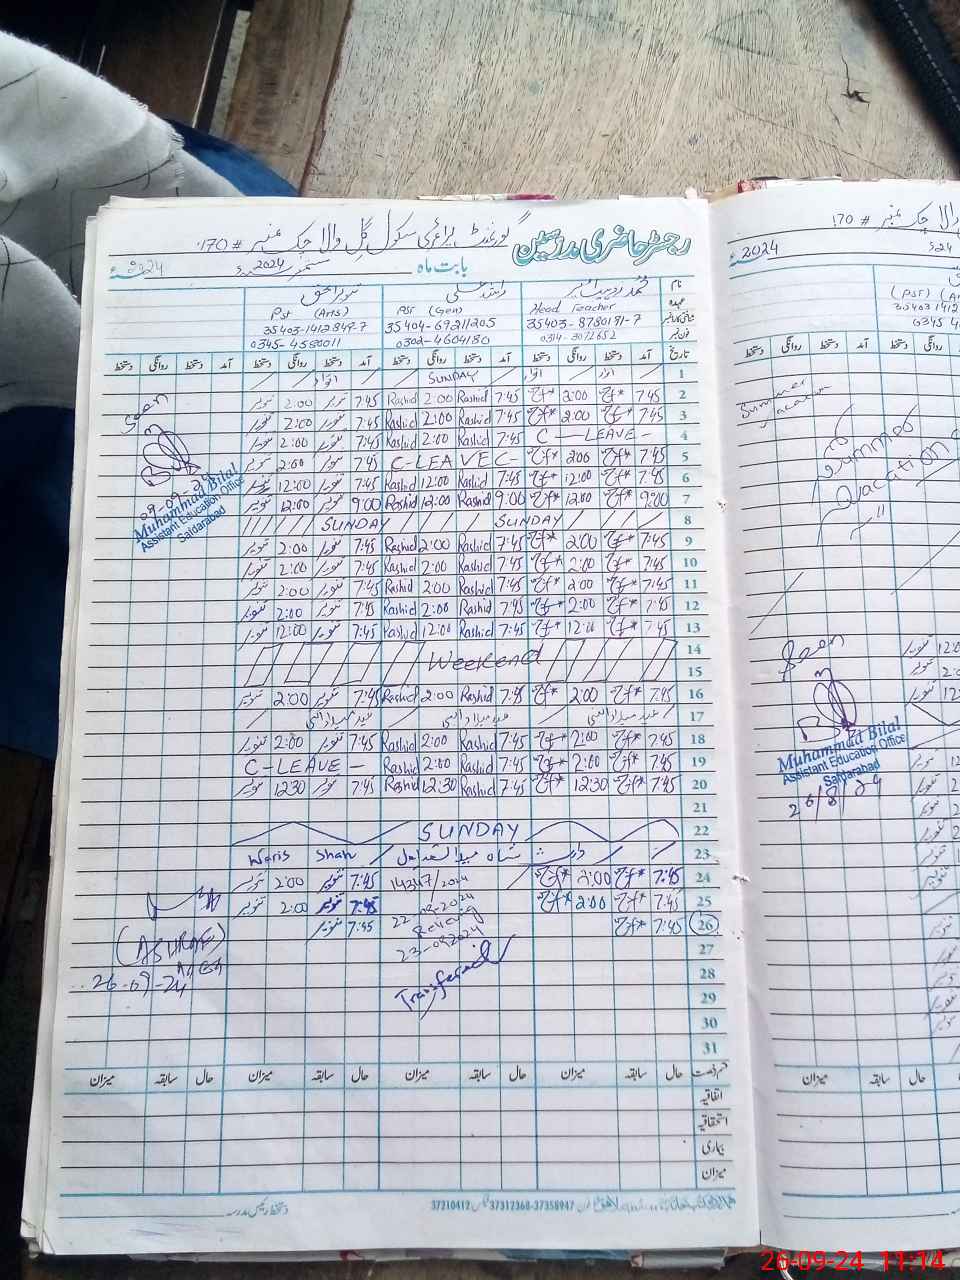 رجسٹر حاضری مدرسین
گورنمنٹ پرائمری سکول گل والا چک نمبر # 170
بابت ماہ ستمبر 2024
نام
عہدہ
Head Teacher
35403-8780191-7
0314-3072652
راشد علی
PST (Gen)
35404-69211205
0302-4604180
تنویر الحق
PST (Arts)
35403-1412849-7
0345-4550011
تاریخ آمد دستخط روانگی دستخط آمد دستخط روانگی دستخط آمد دستخط روانگی دستخط دستخط روانگی دستخط
1 اتوار اتوار SUNDAY اتوار
2 7:45 2:00 7:45 Rashid 2:00 Rashid 7:45 تنویر 2:00 تنویر
3 7:45 2:00 7:45 Rashid 2:00 Rashid 7:45 تنویر 2:00 تنویر
4 C-LEAVE- 7:45 Rashid 2:00 Rashid 7:45 تنویر 2:00 تنویر
5 7:45 2:00 C-LEAVE C- 7:45 تنویر 2:00 تنویر
6 7:45 12:00 7:45 Rashid 12:00 Rashid 7:45 تنویر 12:00 تنویر
7 9:00 12:00 9:00 Rashid 12:00 Rashid 9:00 تنویر 12:00 تنویر
8 SUNDAY SUNDAY
9 7:45 2:00 7:45 Rashid 2:00 Rashid 7:45 تنویر 2:00 تنویر
10 7:45 2:00 7:45 Rashid 2:00 Rashid 7:45 تنویر 2:00 تنویر
11 7:45 2:00 7:45 Rashid 2:00 Rashid 7:45 تنویر 2:00 تنویر
12 7:45 2:00 7:45 Rashid 2:00 Rashid 7:45 تنویر 2:00 تنویر
13 7:45 12:00 7:45 Rashid 12:00 Rashid 7:45 تنویر 12:00 تنویر
14
Weekend
15
16 7:45 2:00 7:45 Rashid 2:00 Rashid 7:45 تنویر 2:00 تنویر
17 عید میلاد النبی عید میلاد النبی عید میلاد النبی
18 7:45 2:00 7:45 Rashid 2:00 Rashid 7:45 تنویر 2:00 تنویر
19 7:45 2:00 7:45 Rashid 2:00 Rashid C-LEAVE-
20 7:45 12:30 7:45 Rashid 12:30 Rashid 7:45 تنویر 12:30 تنویر
21
22 SUNDAY
23 وارث شاہ Waris Shah
24 7:45 2:00 14347/2024 7:45 تنویر 2:00 تنویر
25 7:45 2:00 7:45 تنویر 2:00 تنویر
26 7:45 7:45 تنویر
Relieving
Transfered
27
28
29
30
31
Seen
09-09-24
Muhammad Bilal
Assistant Education Office
Safdarabad
(ASHRAF)
26-09-24
حال سابقہ میزان حال سابقہ میزان حال سابقہ میزان حال سابقہ میزان
اتفاقیہ
استحقاقیہ
بیماری
میزان
37210412 37312368-37358947
دستخط رئیس مدرسہ
# 170
2024
Summer
Vacation
Summer
Vacation
Seen
Muhammad Bilal
Assistant Education Office
Safdarabad
26/8/24
حال سابقہ میزان
26-09-24 11:14